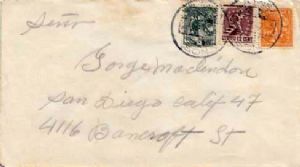 Señor
Gorge Maclindon
San Diego Calif 47
4116 Bancroft St